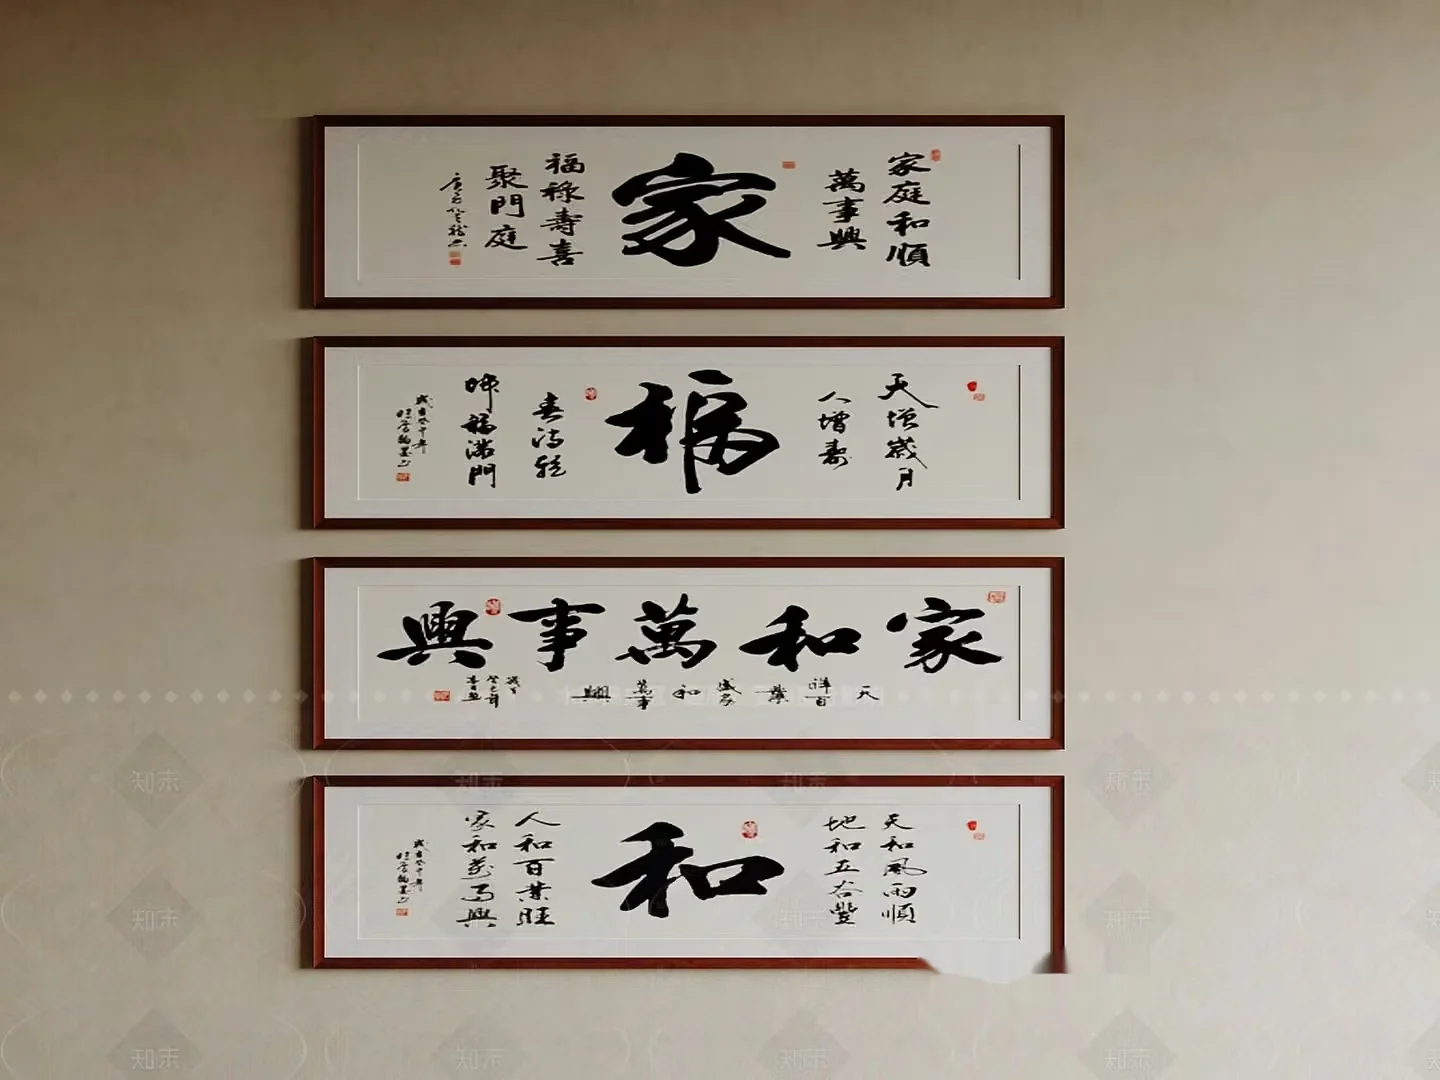 家庭和順
萬事興
家
福祿壽喜
聚門庭
天增歲月
人增壽
福
春滿乾
福滿門
家和萬事興
天
祥百
業
盛家
和
萬事
興
天和風雨順
地和五谷豐
和
人和百業旺
家和萬事興
知末
知末
知末
知末
知末
知末
知末
知末
知末